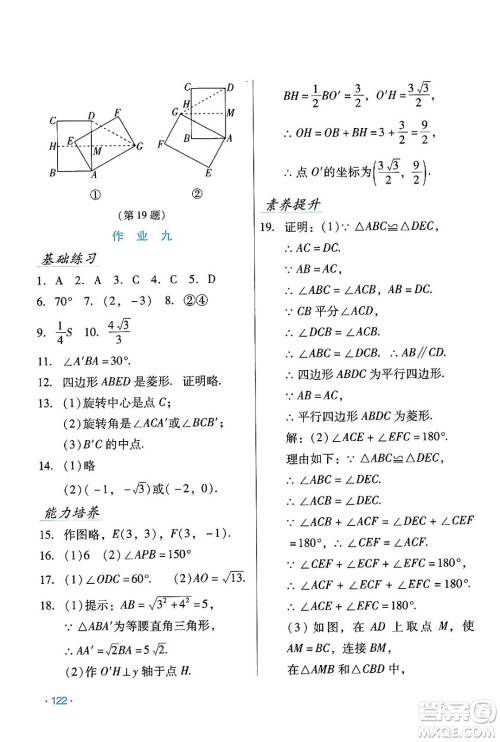 C D F E H M G B A
①
C D H G M B A F E
②
(第19题)
作 业 九
基础练习
1. A  2. A  3. A  4. C  5. A
6. 70°  7. (2, -3)  8. ②④
9. 1/4 S  10. 4√3/3
11. ∠A′BA=30°.
12. 四边形ABED是菱形. 证明略.
13. (1)旋转中心是点C;
(2)旋转角是∠ACA′或∠BCB′;
(3)B′C的中点.
14. (1)略
(2)(-1, -√3)或(-2, 2).
能力培养
15. 作图略, E(3, 3), F(3, -1).
16. (1)6  (2)∠APB=150°
17. (1)∠ODC=60°.  (2)AO=√13.
18. (1)提示: AB=√(3²+4²)=5,
∵△ABA′为等腰直角三角形,
∴AA′=√2AB=5√2.
(2)作O′H⊥y轴于点H.
· 122 ·
BH=1/2 BO′=3/2, O′H=3√3/2
∴OH=OB+BH=3+3/2=9/2,
∴点O′的坐标为(3√3/2, 9/2).
素养提升
19. 证明: (1)∵△ABC≌△DEC,
∴AC=DC.
∵AB=AC,
∴∠ABC=∠ACB, AB=DC.
∵CB平分∠ACD,
∴∠ACB=∠DCB.
∴∠ABC=∠DCB. ∴AB∥CD.
∴四边形ABDC为平行四边形.
∵AB=AC,
∴平行四边形ABDC为菱形.
解: (2)∠ACE+∠EFC=180°.
理由如下: ∵△ABC≌△DEC,
∴∠ABC=∠DEC.
∵AB=AC,
∴∠ABC=∠ACB.
∴∠ACB=∠DEC.
∵∠ACB+∠ACF=∠DEC+∠CEF
=180°,
∴∠ACF=∠CEF.
∵∠CEF+∠ECF+∠EFC=180°,
∴∠ACF+∠ECF+∠EFC=180°.
∴∠ACE+∠EFC=180°.
(3)如图, 在AD上取点M, 使
AM=BC, 连接BM.
在△AMB和△CBD中,